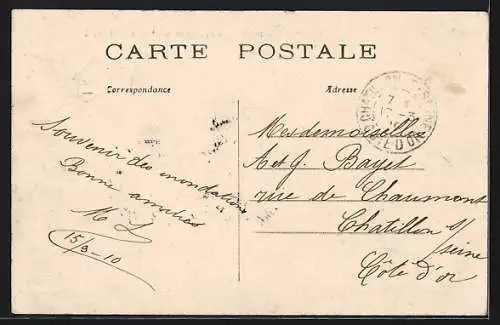 CARTE POSTALE
Correspondance
Adresse
Souvenir des inondations
Bonne amitiés
M L
15/3-10
Mesdemoiselles
A et G. Bayet
rue de Chaumont
Chatillon s/
seine
Côte d'or